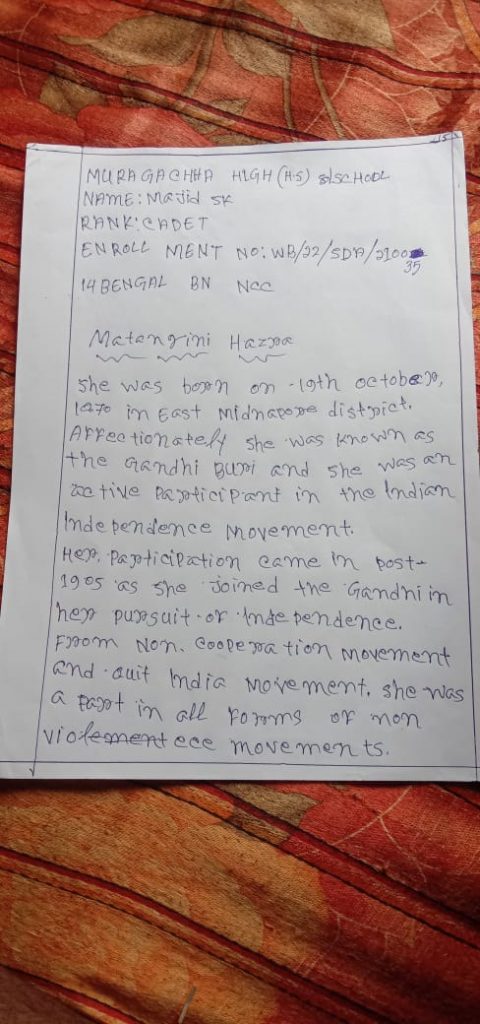 MURAGACHHA HIGH (HS) SCHOOL
NAME: Majid SK
RANK: CADET
ENROLL MENT NO: WB/22/SDA/2100
35
14 BENGAL BN NCC
Matangini Hazra
She was born on 19th october,
1870 in East Midnapore district.
Affectionately she was known as
the Gandhi Buri and she was an
active Participant in the Indian
Independence Movement.
Her Participation came in post-
1905 as she joined the Gandhi in
her pursuit of Independence.
From Non. Cooperation Movement
and quit India Movement, she was
a part in all Forms of non
movements.